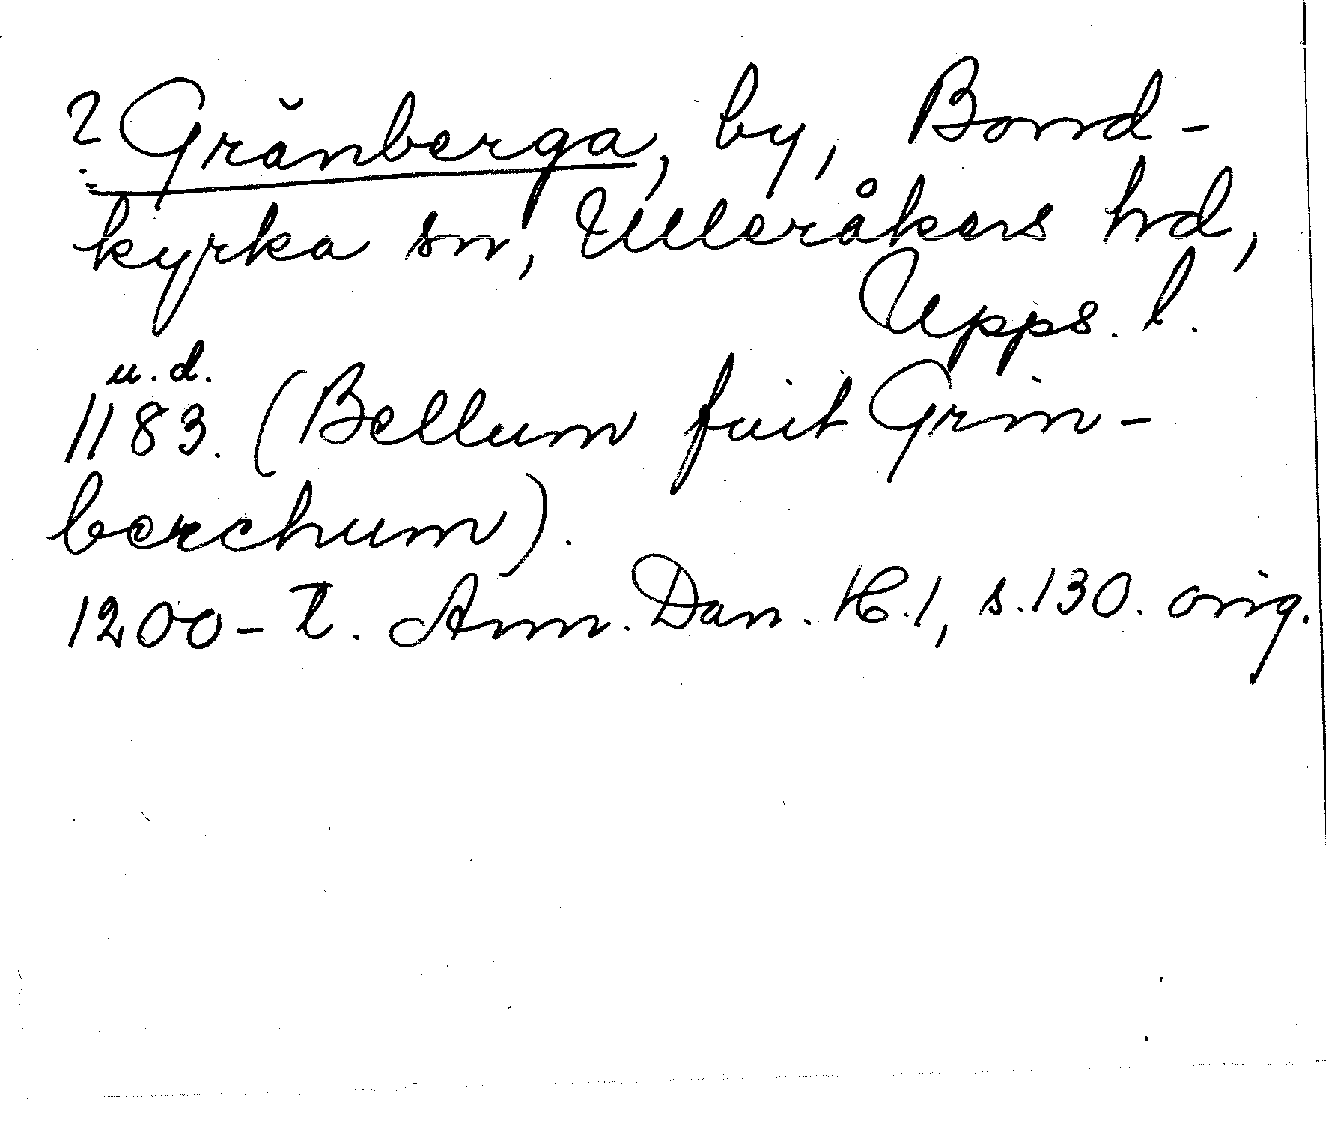 ? Grånberga, by, Bond-
kyrka sn, Ulleråkers hd,
Upps. l.
u. d.
1183. (Bellum fuit Grim-
berchum).
1200-t. Ann. Dan. K. 1, s. 130. orig.